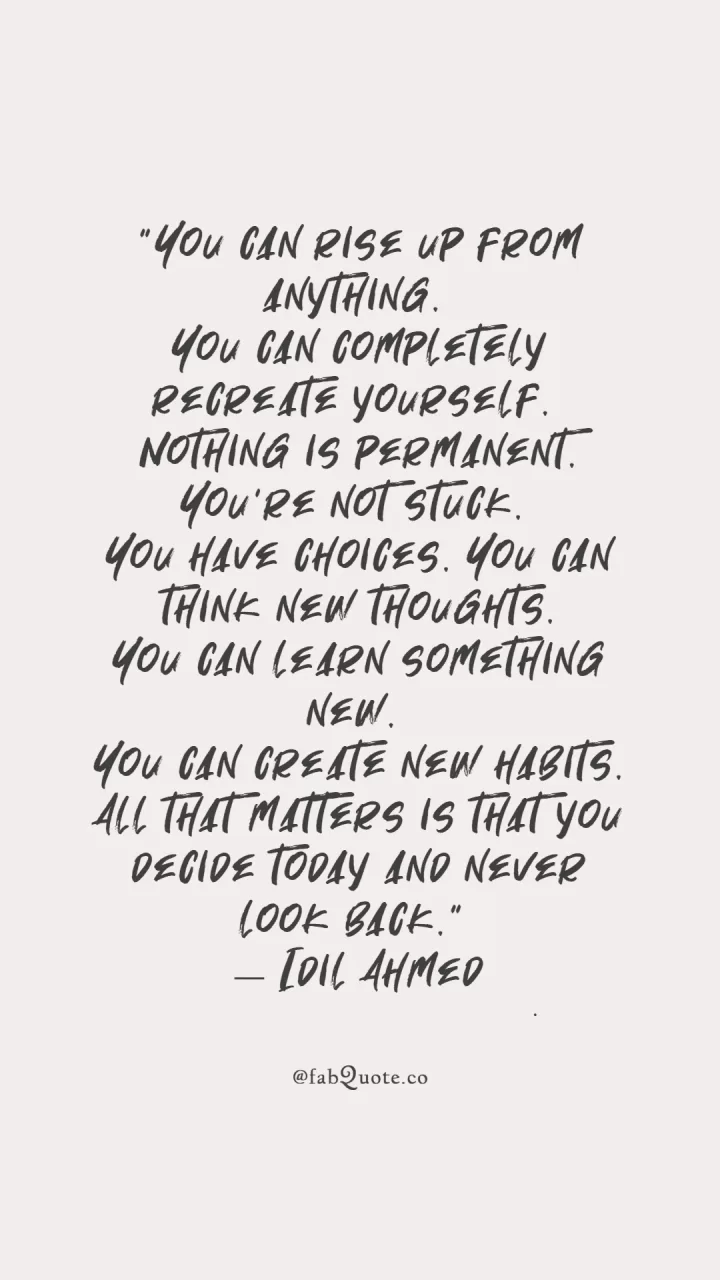 "You can rise up from
anything.
You can completely
recreate yourself.
Nothing is permanent.
You're not stuck.
You have choices. You can
think new thoughts.
You can learn something
new.
You can create new habits.
All that matters is that you
decide today and never
look back."
— Idil Ahmed
.
@fabQuote.co